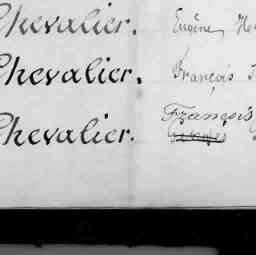 Chevalier. Eugène
Chevalier. François
Chevalier. François
Georges